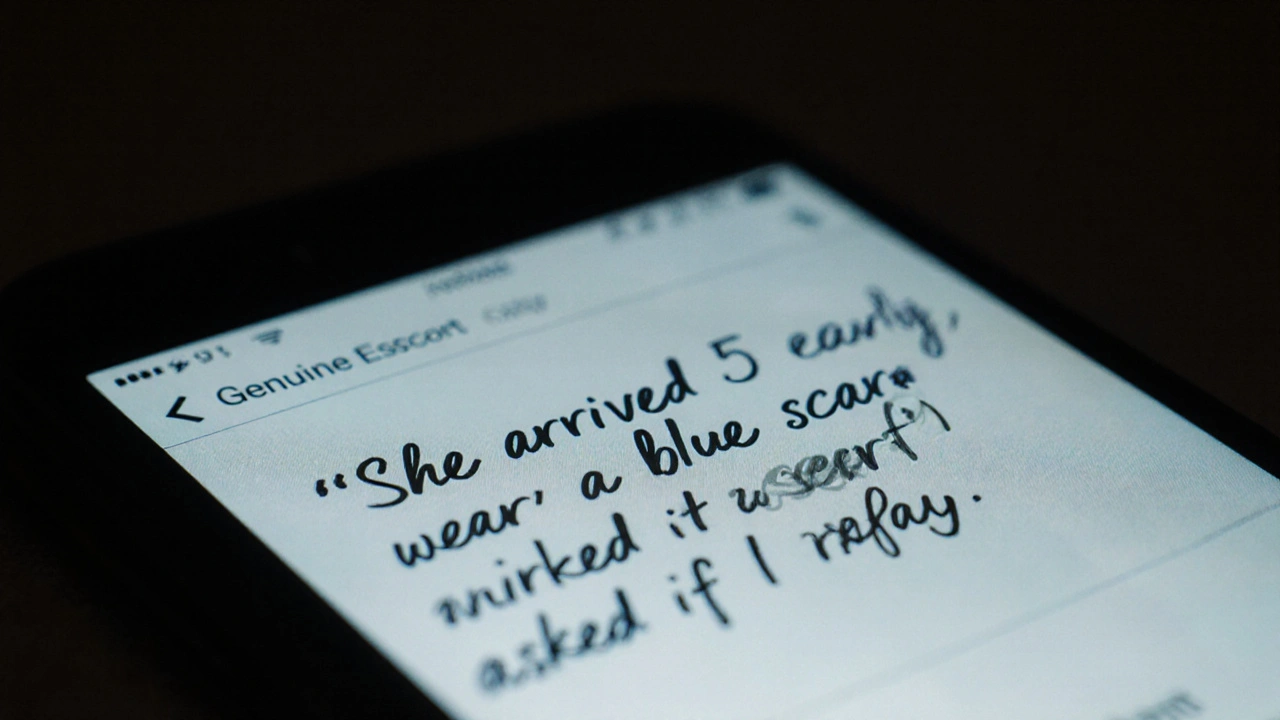 Genuine Esscort
“She arrived 5 early,
wear’ a blue scar
mirked it
asked if I